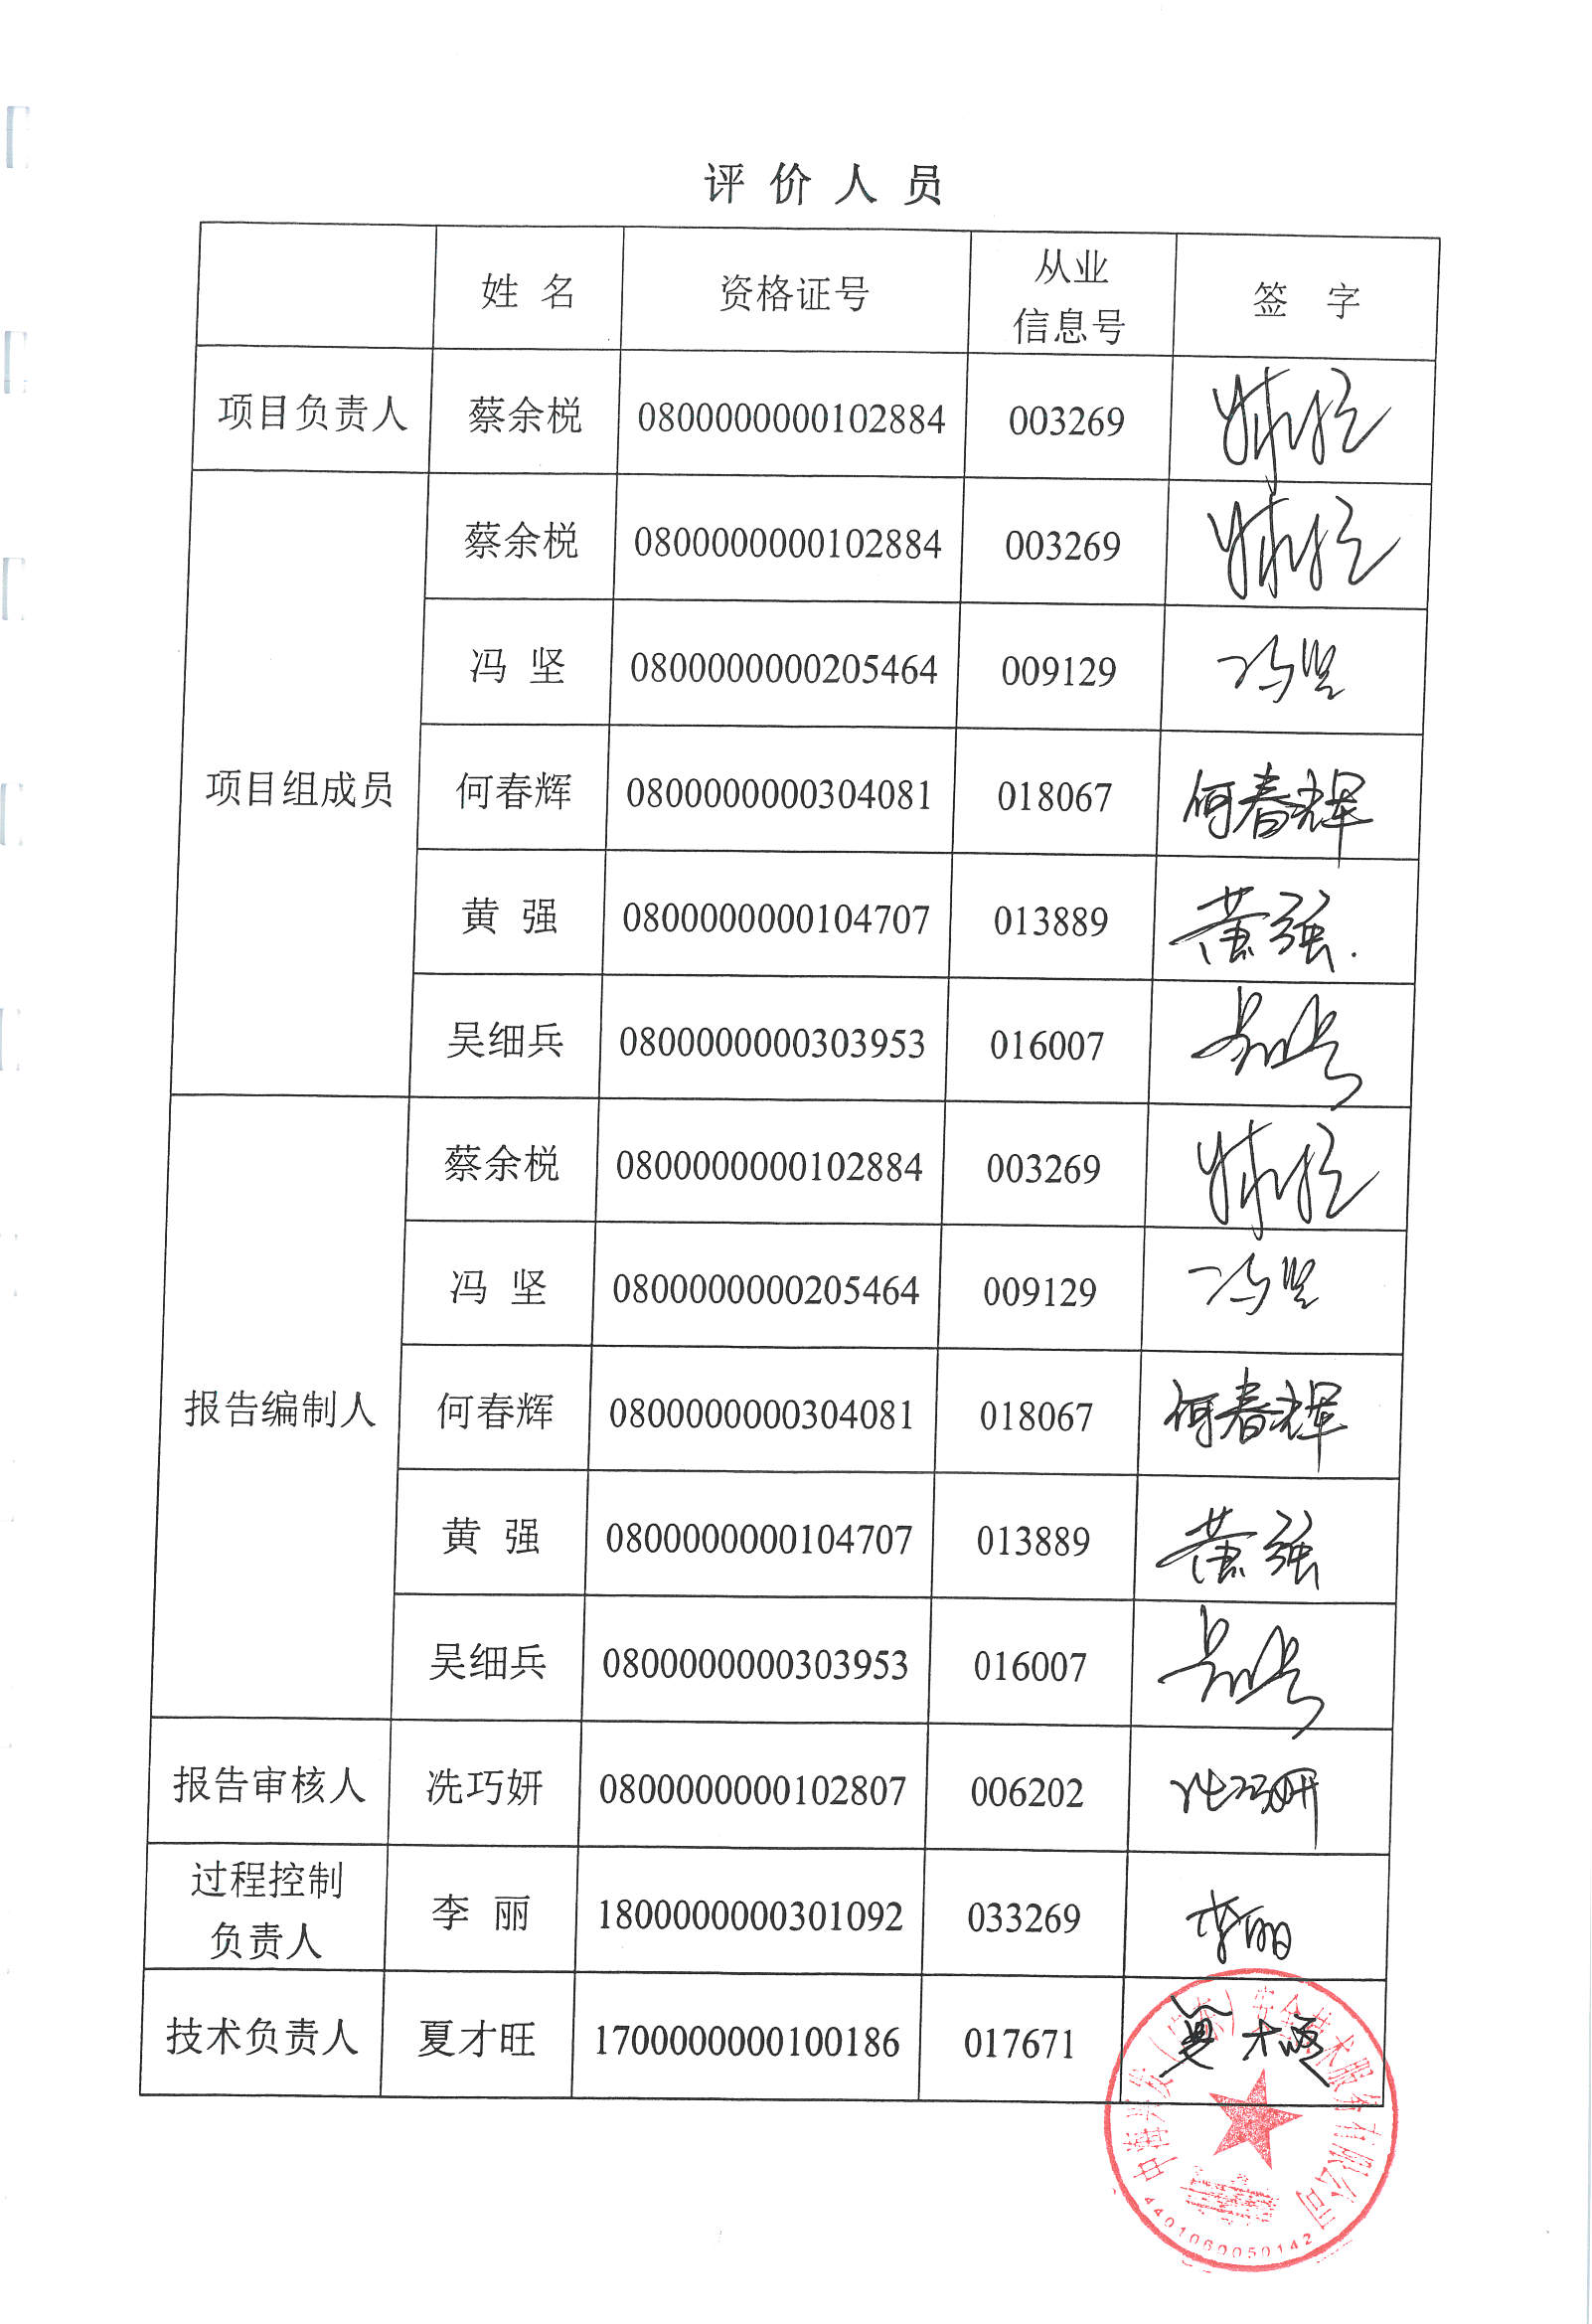 评价人员
姓 名 资格证号 从业信息号 签 字
项目负责人 蔡余棁 0800000000102884 003269
项目组成员 蔡余棁 0800000000102884 003269
冯 坚 0800000000205464 009129 冯坚
何春辉 0800000000304081 018067 何春辉
黄 强 0800000000104707 013889 黄强
吴细兵 0800000000303953 016007
报告编制人 蔡余棁 0800000000102884 003269
冯 坚 0800000000205464 009129 冯坚
何春辉 0800000000304081 018067 何春辉
黄 强 0800000000104707 013889 黄强
吴细兵 0800000000303953 016007
报告审核人 冼巧妍 0800000000102807 006202 冼巧妍
过程控制负责人 李 丽 1800000000301092 033269 李丽
技术负责人 夏才旺 1700000000100186 017671 夏才旺
安全技术服务有限公司
4401060050142